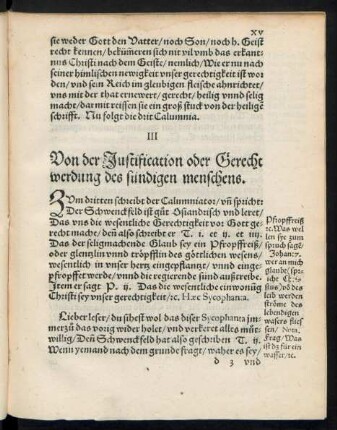 XV
sie weder Gott den Vatter/ noch Son/ noch h. Geist
recht kennen/ bekümeren sich nit vil vmb das erkant-
nus Christi nach dem Geiste/ nemlich/ Wie er nu nach
seiner himlischen newigkeit vnser gerechtigkeit ist wor
den/ vnd sein Reich im gleubigen fleische ahnrichtet/
vns mit der that ernewert/ gerecht/ heilig vnnd selig
macht/ dar mit reissen sie ein groß stuck von der heiligē
schrifft. Nu folgt die drit Calumnia.
III
Von der Justification oder Gerecht
werdung des sündigen menschens.
ZVm dritten schreibt der Calumniator/ vñ spricht:
Der Schwenckfeld ist güt Osiandrisch vnd leret/
Das vns die wesentliche Gerechtigkeit vor Gott ge-
recht mache/ den also schreibt er T. i. et ij. et iij.
Das der seligmachende Glaub sey ein Pfropffreiß/
oder glentzlin vnnd tröpfflin des göttlichen wesens/
wesentlich in vnser hertz eingepflantzt/ vnnd einge-
pfropffet werde/ vnnd die regierende sünd außtreibe.
Jtem er sagt P. ij. Das die wesentliche einwonūg
Christi sey vnser gerechtigkeit/ ꝛc. Hæc Sycophanta.
Pfropffreiß
ꝛc. Was wel
len sye zum
spruch sagē/
Johan: 7.
wer an mich
glaubt (spri-
cht Chri-
stus) võ des
leib werden
ströme des
lebendigen
wasers flies
sen/ Nem.
Frag/ Was
ist dz für ein
waffer/ ꝛc.
Lieber leser/ du sihest wol das diser Sycophanta im-
merzů das vorig wider holet/ vnd verkeret alles müt-
willig/ Deñ Schwenckfeld hat also geschriben T. ij.
Wenn yemand nach dem grunde fragt/ waher es sey/
d 3 vnd